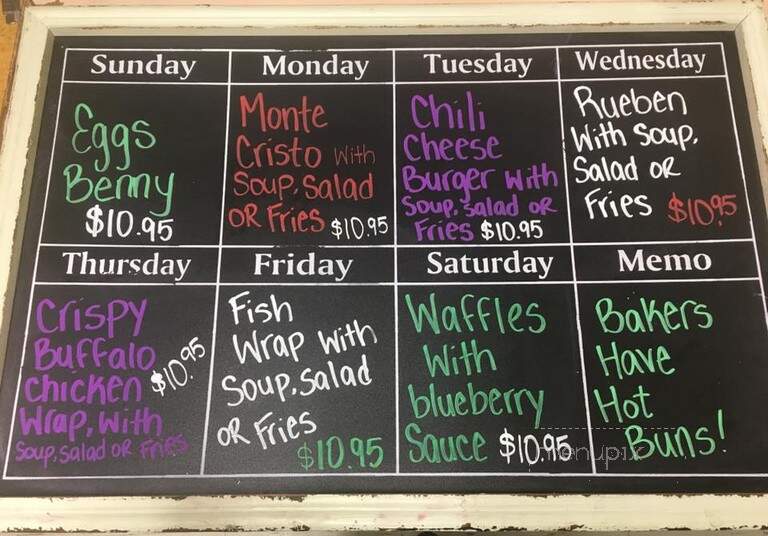 Sunday
Eggs
Benny
$10.95
Monday
Monte
Cristo with
Soup, Salad
OR Fries $10.95
Tuesday
Chili
Cheese
Burger with
Soup, Salad OR
Fries $10.95
Wednesday
Rueben
With Soup,
Salad OR
Fries $10.95
Thursday
Crispy
Buffalo
Chicken $10.95
Wrap, with
Soup, Salad OR Fries
Friday
Fish
Wrap with
Soup, Salad
OR Fries
$10.95
Saturday
Waffles
With
blueberry
Sauce $10.95
Memo
Bakers
Have
Hot
Buns!
menupix